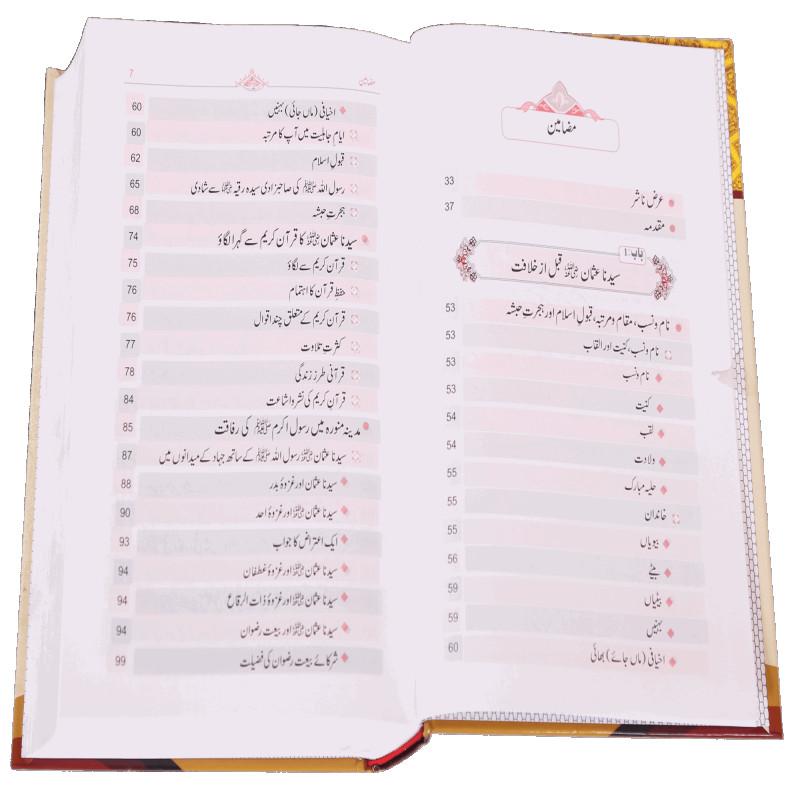 مضامین
عرض ناشر 33
مقدمہ 37
باب 1
سیدنا عثمان رضی اللہ عنہ قبل از خلافت
نام و نسب، مقام و مرتبہ، قبولِ اسلام اور ہجرتِ حبشہ 53
نام و نسب، کنیت اور القاب 53
نام و نسب 53
کنیت 53
لقب 54
ولادت 54
حلیہ مبارک 55
خاندان 55
بیویاں 55
بیٹے 56
بیٹیاں 59
بہنیں 59
اخیافی (ماں جائے) بھائی 60
مضامین 7
اخیافی (ماں جائی) بہنیں 60
ایام جاہلیت میں آپ کا مرتبہ 60
قبولِ اسلام 62
رسول اللہ ﷺ کی صاحبزادی سیدہ رقیہ رضی اللہ عنہا سے شادی 65
ہجرتِ حبشہ 68
سیدنا عثمان رضی اللہ عنہ کا قرآن کریم سے گہرا لگاؤ 74
قرآن کریم سے لگاؤ 75
حفظِ قرآن کا اہتمام 76
قرآن کریم کے متعلق چند اقوال 76
کثرتِ تلاوت 77
قرآنی طرز زندگی 78
قرآن کریم کی نشر و اشاعت 84
مدینہ منورہ میں رسول اکرم ﷺ کی رفاقت 85
سیدنا عثمان رضی اللہ عنہ رسول اللہ ﷺ کے ساتھ جہاد کے میدانوں میں 87
سیدنا عثمان اور غزوۂ بدر 88
سیدنا عثمان رضی اللہ عنہ اور غزوۂ احد 90
ایک اعتراض کا جواب 93
سیدنا عثمان رضی اللہ عنہ اور غزوۂ غطفان 94
سیدنا عثمان رضی اللہ عنہ اور غزوۂ ذات الرقاع 94
سیدنا عثمان رضی اللہ عنہ اور بیعت رضوان 94
شرکائے بیعت رضوان کی فضیلت 99